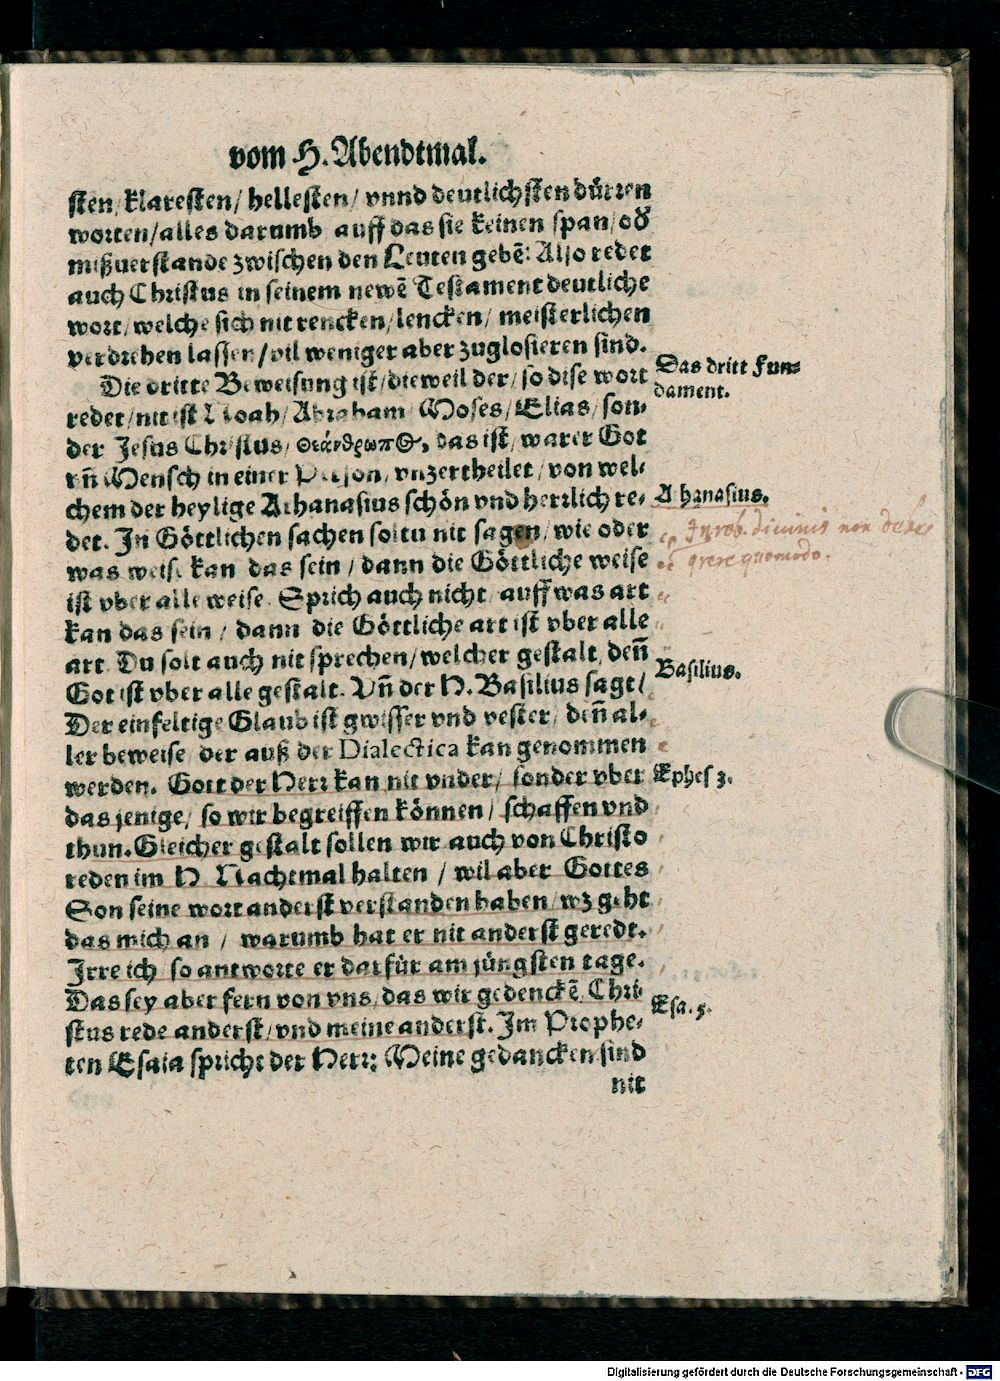 vom H. Abendtmal.
sten/ klaresten/ hellesten/ vnnd deutlichsten dürren
worten/ alles darumb auff das sie keinen span/ od̕
mißuerstande zwischen den Leuten gebē: Also redet
auch Christus in seinem newē Testament deutliche
wort/ welche sich nit rencken/ lencken/ meisterlichen
verdrehen lassen/ vil weniger aber zuglosieren sind.
Die dritte Beweisung ist/ dieweil der/ so dise wort
Das dritt Fun⸗
dament.
redet/ nit ist Noah/ Abraham/ Moses/ Elias/ son⸗
der Jesus Christus/ θεάνθρωπος, das ist/ warer Got
vñ Mensch in einer Person/ vnzertheilet/ von wel⸗
chem der heylige Athanasius schön vnd herrlich re⸗
Athanasius.
det. Jn Göttlichen sachen soltu nit sagen/ wie oder
Jn reb. diuinis non debes
was weise kan das sein/ dann die Göttliche weise
qrere quomodo.
ist vber alle weise. Sprich auch nicht/ auff was art
kan das sein/ dann die Göttliche art ist vber alle
art. Du solt auch nit sprechen/ welcher gestalt/ deñ
Basilius.
Got ist vber alle gestalt. Vñ der H. Basilius sagt/
Der einfeltige Glaub ist gwisser vnd vester/ deñ al⸗
ler beweise/ der auß der Dialectica kan genommen
werden. Gott der Herr kan nit vnder/ sonder vber
Ephes 3.
das jenige/ so wir begreiffen können/ schaffen vnd
thun. Gleicher gestalt sollen wir auch von Christo
reden im H. Nachtmal halten/ wil aber Gottes
Son seine wort anderst verstanden haben/ wz geht
das mich an/ warumb hat er nit anderst geredt.
Jrre ich/ so antworte er darfür am jüngsten tage.
Das sey aber fern von vns/ das wir gedenckē/ Chri⸗
Esa. 5.
stus rede anderst/ vnd meine anderst. Jm Prophe⸗
ten Esaia spricht der Herr: Meine gedancken sind
nit
Digitalisierung gefördert durch die Deutsche Forschungsgemeinschaft - DFG